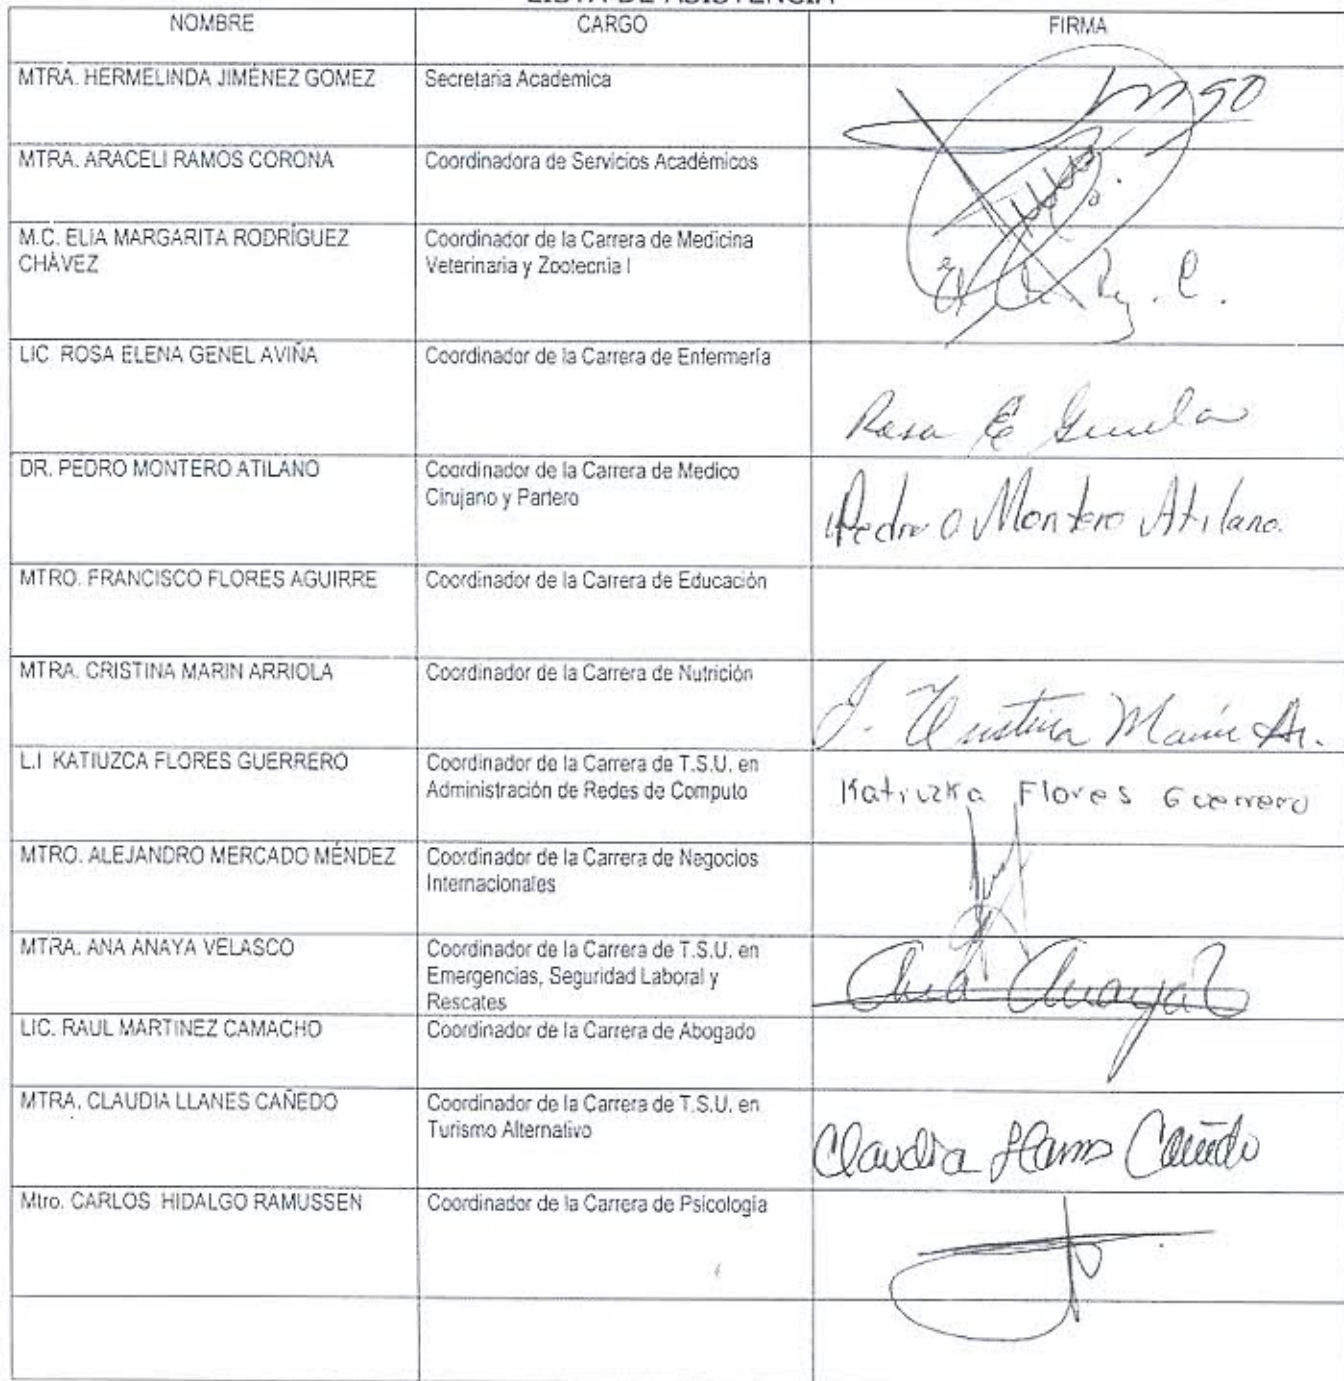 LISTA DE ASISTENCIA
NOMBRE CARGO FIRMA
MTRA. HERMELINDA JIMÉNEZ GOMEZ Secretaria Academica
MTRA. ARACELI RAMOS CORONA Coordinadora de Servicios Académicos
M.C. ELIA MARGARITA RODRÍGUEZ Coordinador de la Carrera de Medicina
CHÁVEZ Veterinaria y Zootecnia I
LIC ROSA ELENA GENEL AVIÑA Coordinador de la Carrera de Enfermería
Rosa E Genel a
DR. PEDRO MONTERO ATILANO Coordinador de la Carrera de Medico
Cirujano y Partero
Pedro Montero Atilano.
MTRO. FRANCISCO FLORES AGUIRRE Coordinador de la Carrera de Educación
MTRA. CRISTINA MARIN ARRIOLA Coordinador de la Carrera de Nutrición
J. Cristina Marín Ar.
L.I KATIUZCA FLORES GUERRERO Coordinador de la Carrera de T.S.U. en
Administración de Redes de Computo
Katiuzka Flores Guerrero
MTRO. ALEJANDRO MERCADO MÉNDEZ Coordinador de la Carrera de Negocios
Internacionales
MTRA. ANA ANAYA VELASCO Coordinador de la Carrera de T.S.U. en
Emergencias, Seguridad Laboral y
Rescates
Ana Anaya
LIC. RAUL MARTINEZ CAMACHO Coordinador de la Carrera de Abogado
MTRA. CLAUDIA LLANES CAÑEDO Coordinador de la Carrera de T.S.U. en
Turismo Alternativo
Claudia Llanes Cañedo
Mtro. CARLOS HIDALGO RAMUSSEN Coordinador de la Carrera de Psicología